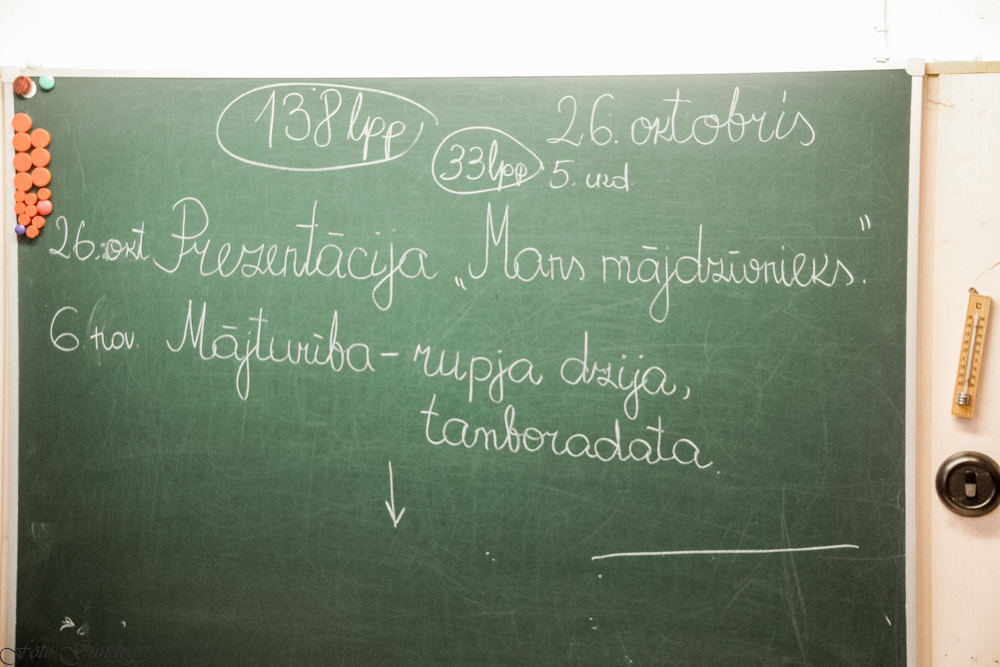 138 lpp 26. oktobris
33 lpp 5. uzd
26. okt Prezentācija „Mans mājdzīvnieks."
6. nov. Mājturība – rupja dzija,
tamboradata.
Foto